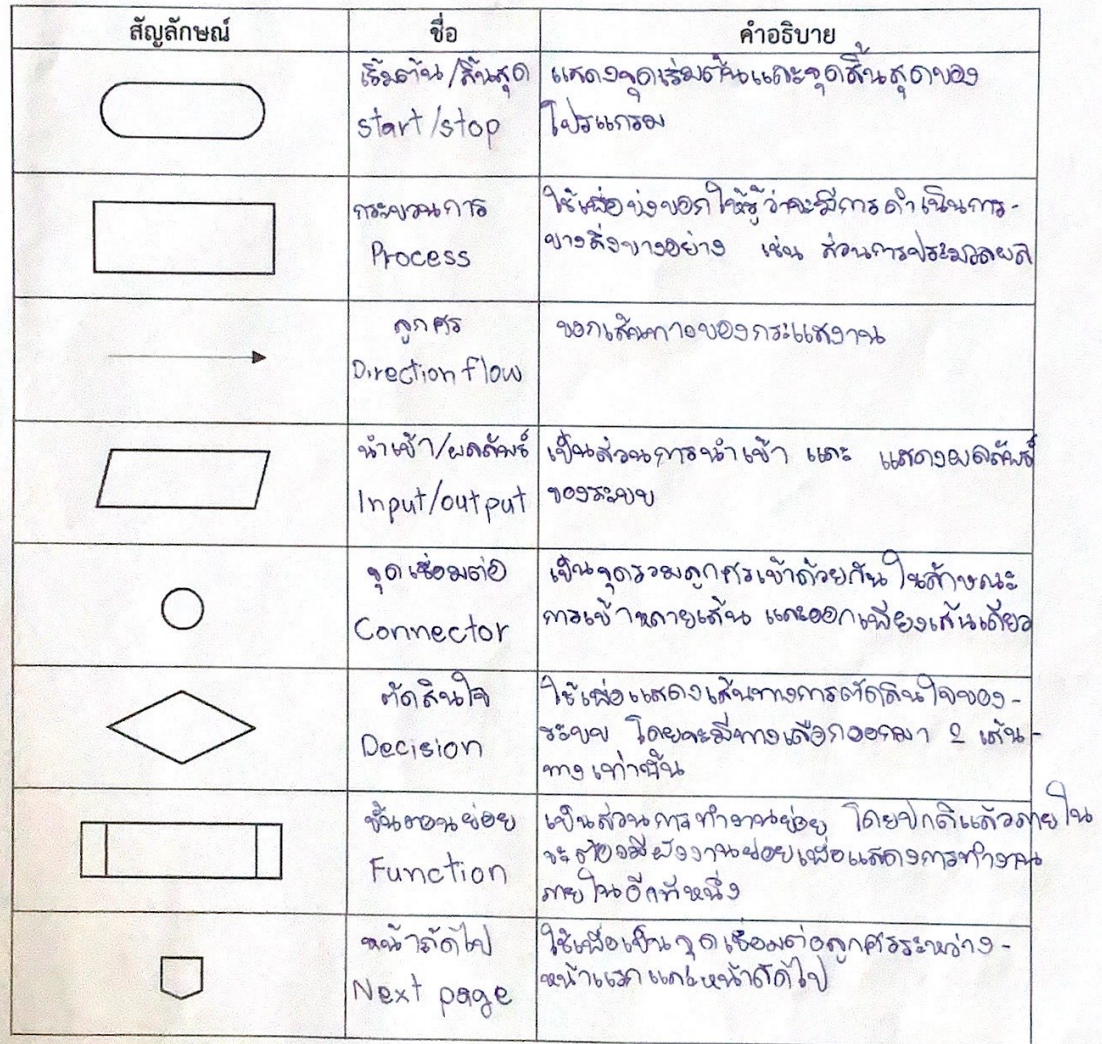 สัญลักษณ์ ชื่อ คำอธิบาย
เริ่มต้น/สิ้นสุด
start/stop
แสดงจุดเริ่มต้นและจุดสิ้นสุดของ
โปรแกรม
กระบวนการ
Process
ใช้เพื่อบ่งบอกให้รู้ว่าจะมีการดำเนินการ-
บางสิ่งบางอย่าง เช่น ส่วนการประมวลผล
ลูกศร
Direction flow
บอกเส้นทางของกระแสงาน
นำเข้า/ผลลัพธ์
Input/output
เป็นส่วนการนำเข้า และ แสดงผลลัพธ์
ของระบบ
จุดเชื่อมต่อ
Connector
เป็นจุดรวมลูกศรเข้าด้วยกัน ในลักษณะ
การเข้าหลายเส้น และออกเพียงเส้นเดียว
ตัดสินใจ
Decision
ใช้เพื่อแสดงเส้นทางการตัดสินใจของ-
ระบบ โดยจะมีทางเลือกออกมา 2 เส้น-
ทางเท่านั้น
ขั้นตอนย่อย
Function
เป็นส่วนการทำงานย่อย โดยปกติแล้วภายใน
จะต้องมีผังงานย่อยเพื่อแสดงการทำงาน
ภายในอีกทีหนึ่ง
หน้าถัดไป
Next page
ใช้เพื่อเป็นจุดเชื่อมต่อลูกศรระหว่าง-
หน้าแรกและหน้าถัดไป